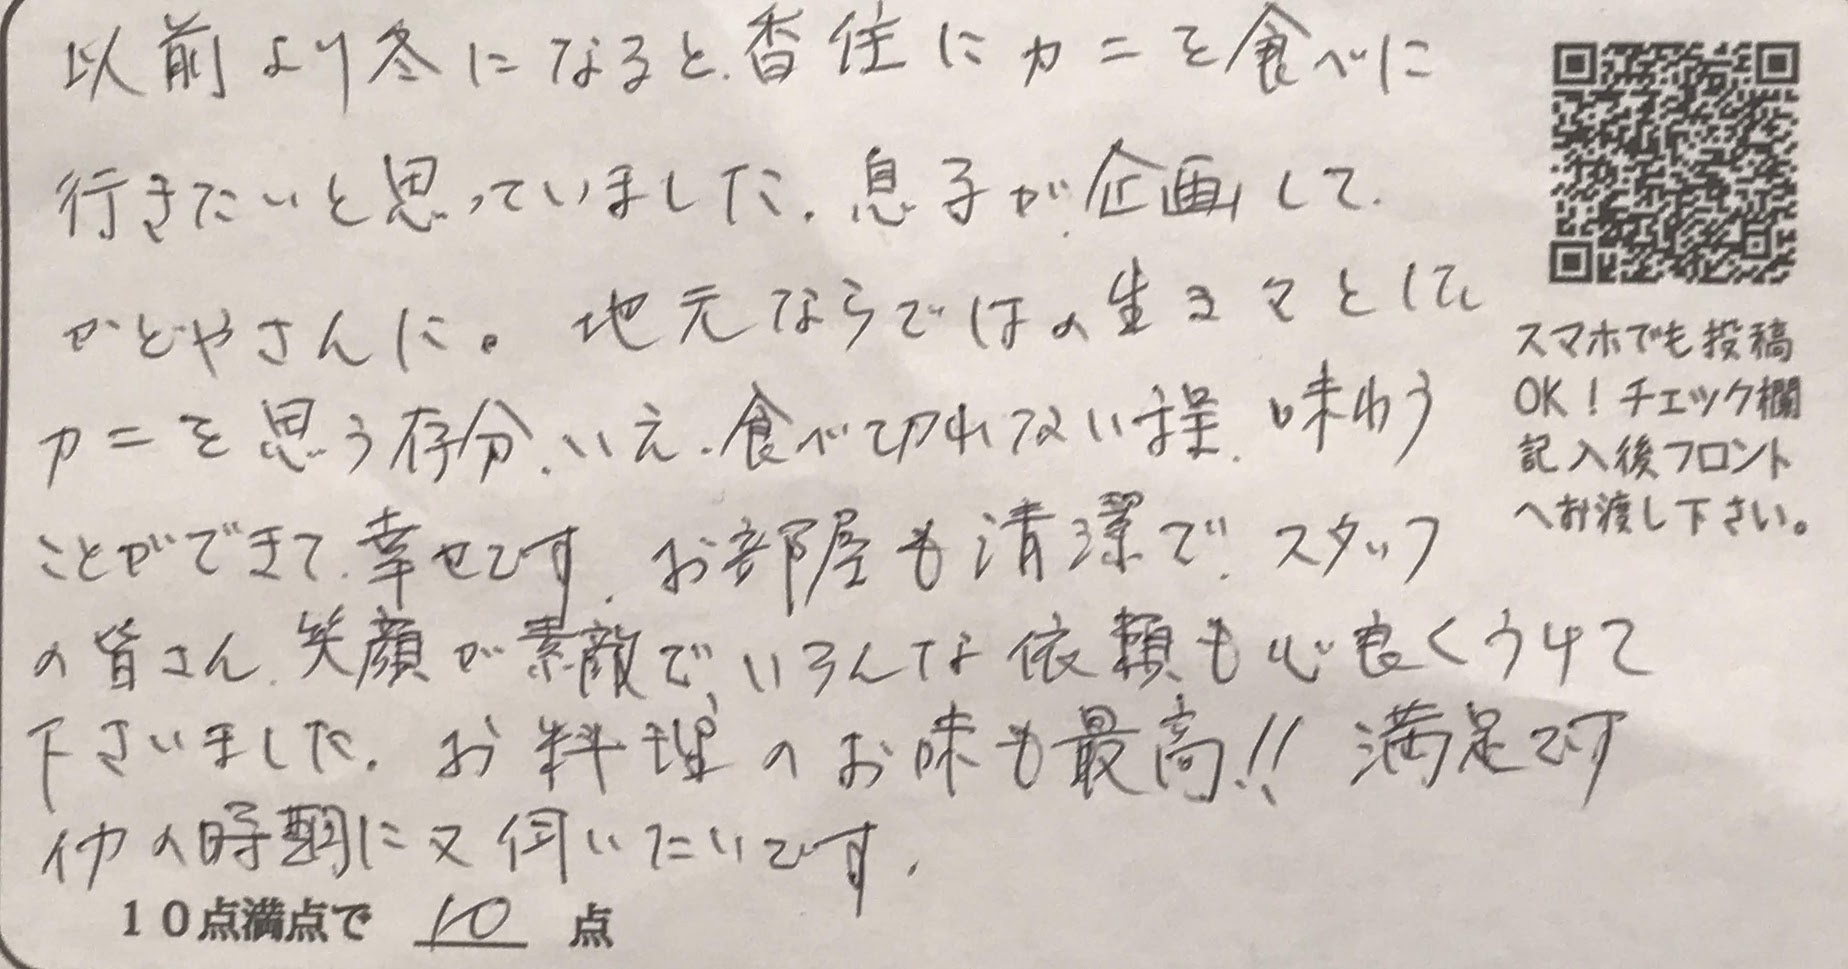 以前より冬になると、香住にカニを食べに
行きたいと思っていました。息子が企画して、
かどやさんに。地元ならではの生ままとして
カニを思う存分、いえ、食べ切れない程、味わう
ことができて、幸せです。お部屋も清潔で、スタッフ
の皆さん、笑顔が素敵で、いろんな依頼も心良くうけて
下さいました。お料理のお味も最高!! 満足です
他の時期に又伺いたいです。
10点満点で 10 点
スマホでも投稿
OK!チェック欄
記入後フロント
へお渡し下さい。